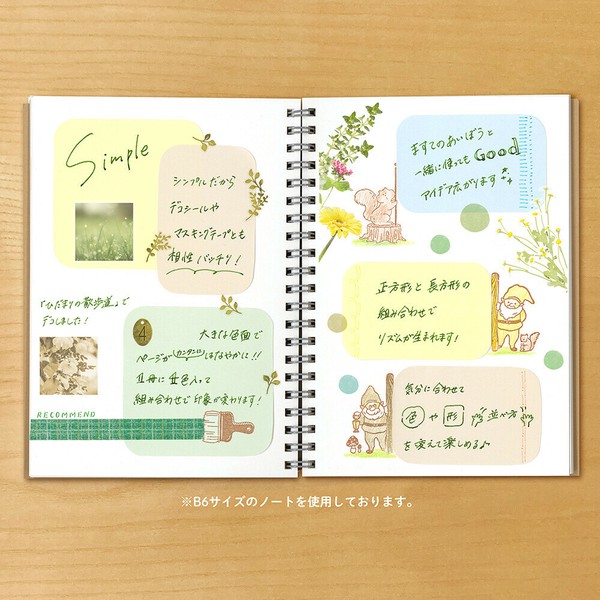 Simple
シンプルだから
デコシールや
マスキングテープとも
相性バッチリ!
「ひだまりの散歩道」で
デコしました!
4
大きな色面で
ページがカンタンにはなやかに!!
1冊に4色入って
組み合わせで印象が変わります!
RECOMMEND
ますてのあいぼうと
一緒に使ってもGood
アイデア広がります
正方形と長方形の
組み合わせで
リズムが生まれます!
気分に合わせて
色や形 並べ方
を変えて楽しめる♪
※B6サイズのノートを使用しております。